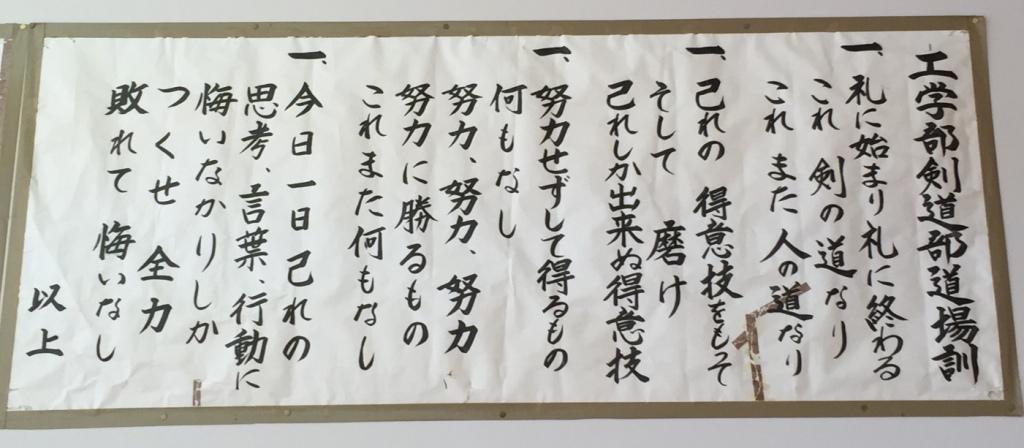 工学部剣道部道場訓
一、礼に始まり礼に終わる
これ 剣の道なり
これ また 人の道なり
一、己れの 得意技をもて
そして 磨け
己れしか出来ぬ得意技
一、努力せずして得るもの
何もなし
努力、努力、努力
努力に勝るもの
これまた何もなし
一、今日一日己れの
思考、言葉、行動に
悔いなかりしか
つくせ 全力
敗れて 悔いなし
以上